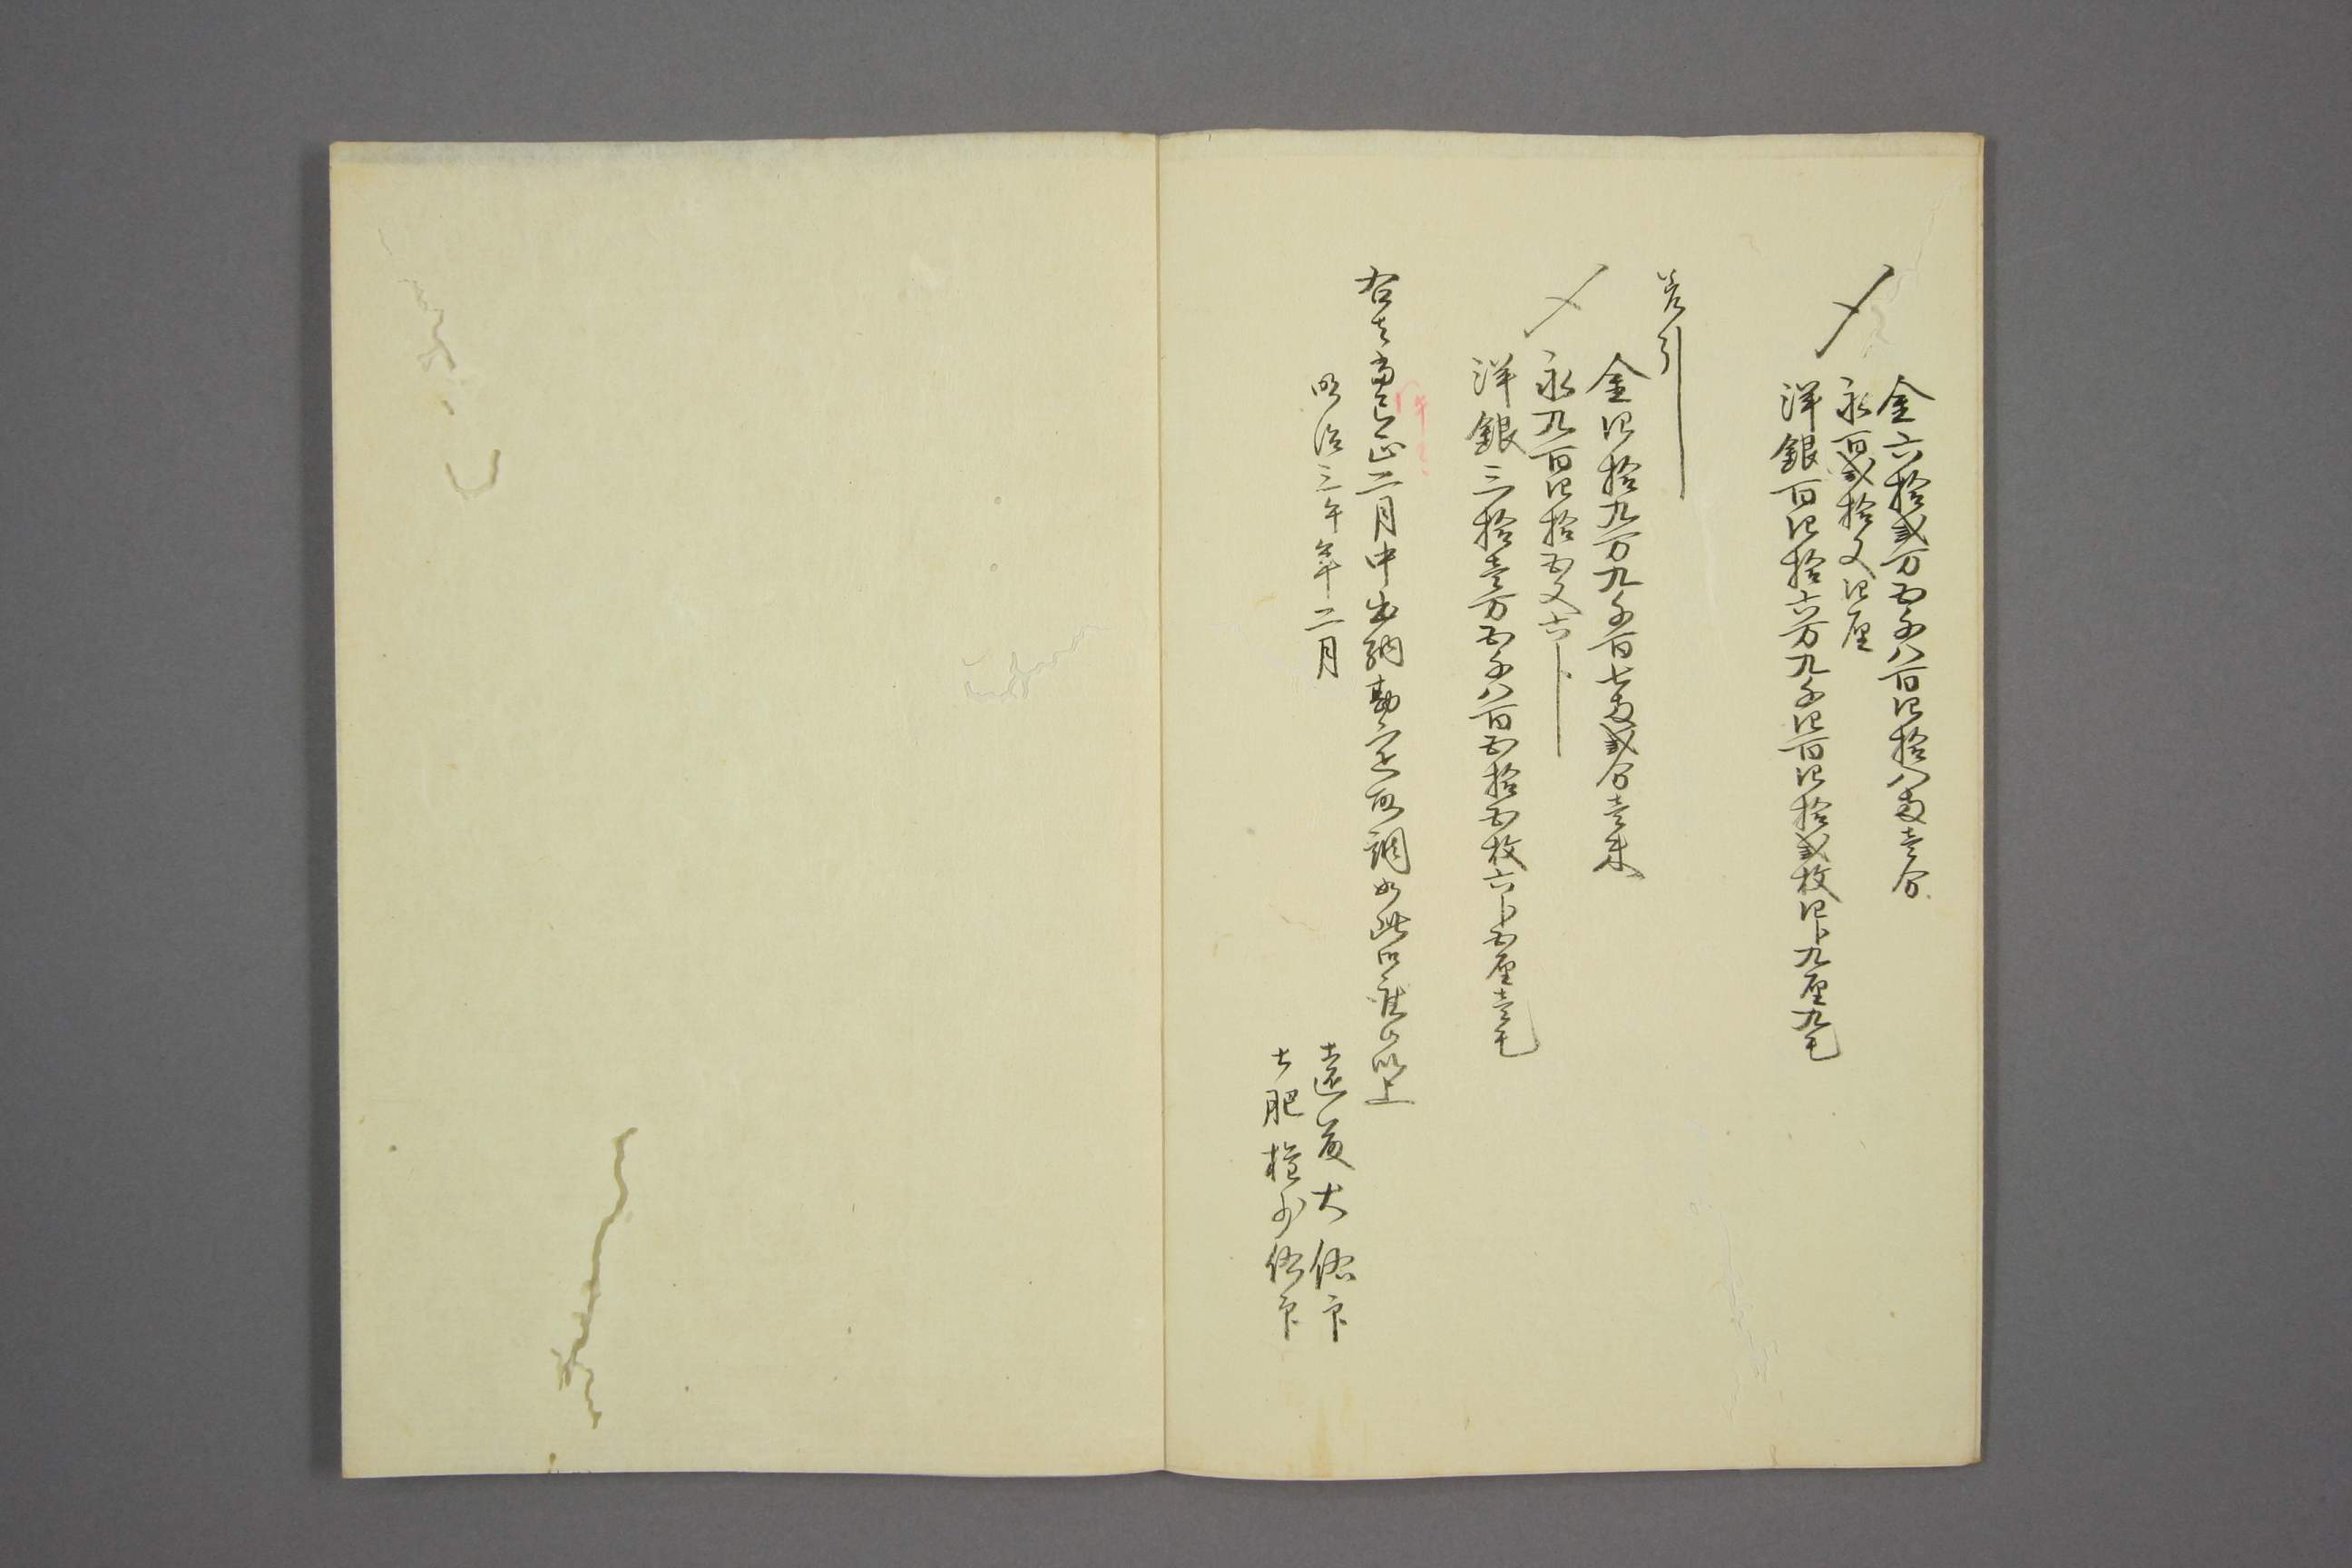 金六拾弐万五千八百四拾八両壱分
〆永百弐拾文四厘
洋銀百四拾六万九千四百四拾弐枚四分九厘九毛
差引
金四拾九万九千百七両弐分壱朱
〆永九百四拾五文六分
洋銀三拾壱万五千八百五拾五枚六分五厘壱毛
右者当正二月中出納勘定取調如此御座候以上
明治三午年二月
遠藤大佑印
土肥権少佑印